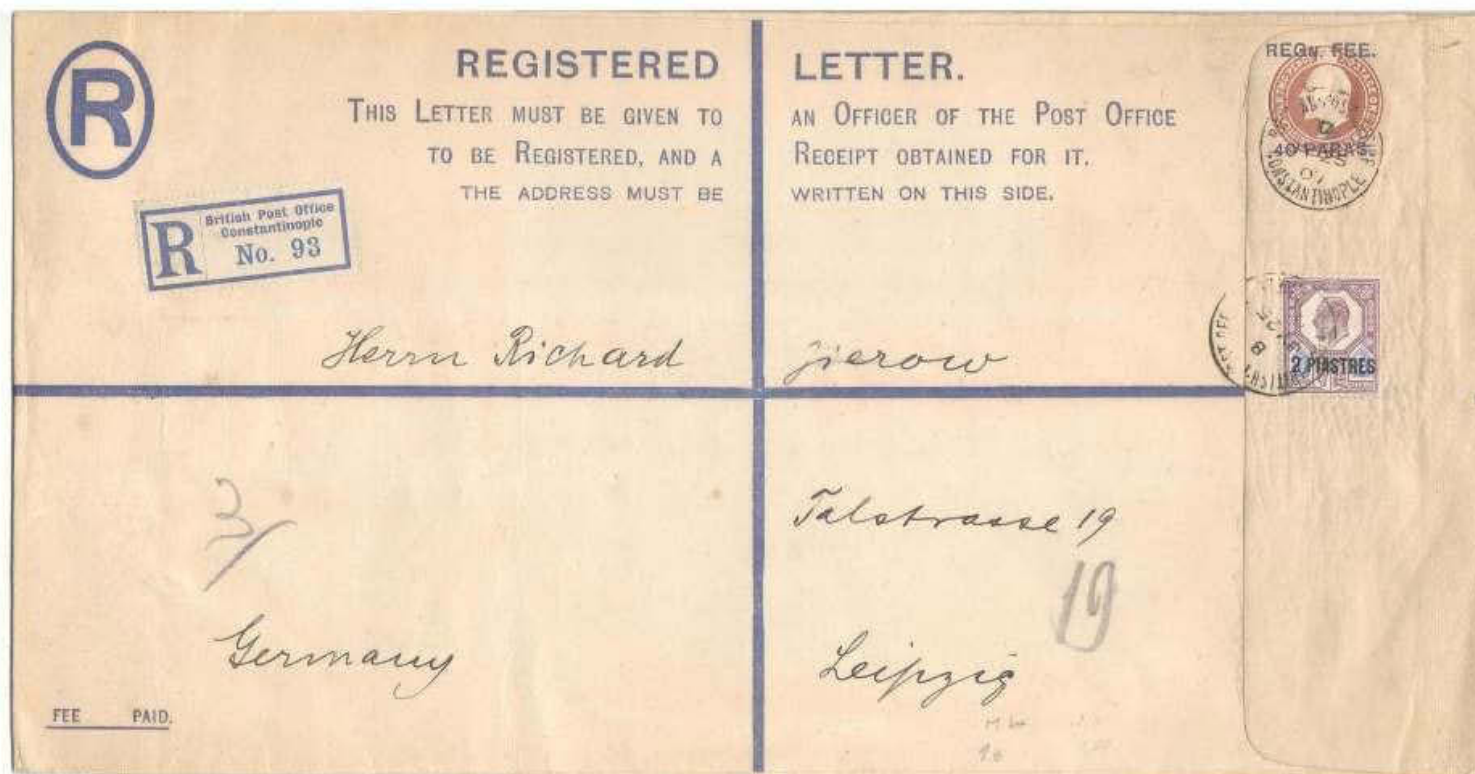 R
REGISTERED LETTER.
THIS LETTER MUST BE GIVEN TO AN OFFICER OF THE POST OFFICE
TO BE REGISTERED, AND A RECEIPT OBTAINED FOR IT.
THE ADDRESS MUST BE WRITTEN ON THIS SIDE.
REGN. FEE.
40 PARAS
CONSTANTINOPLE
R
British Post Office
Constantinople
No. 93
2 PIASTRES
Herrn Richard Zierow
Talstrasse 19
19
Germany
Leipzig
FEE PAID.